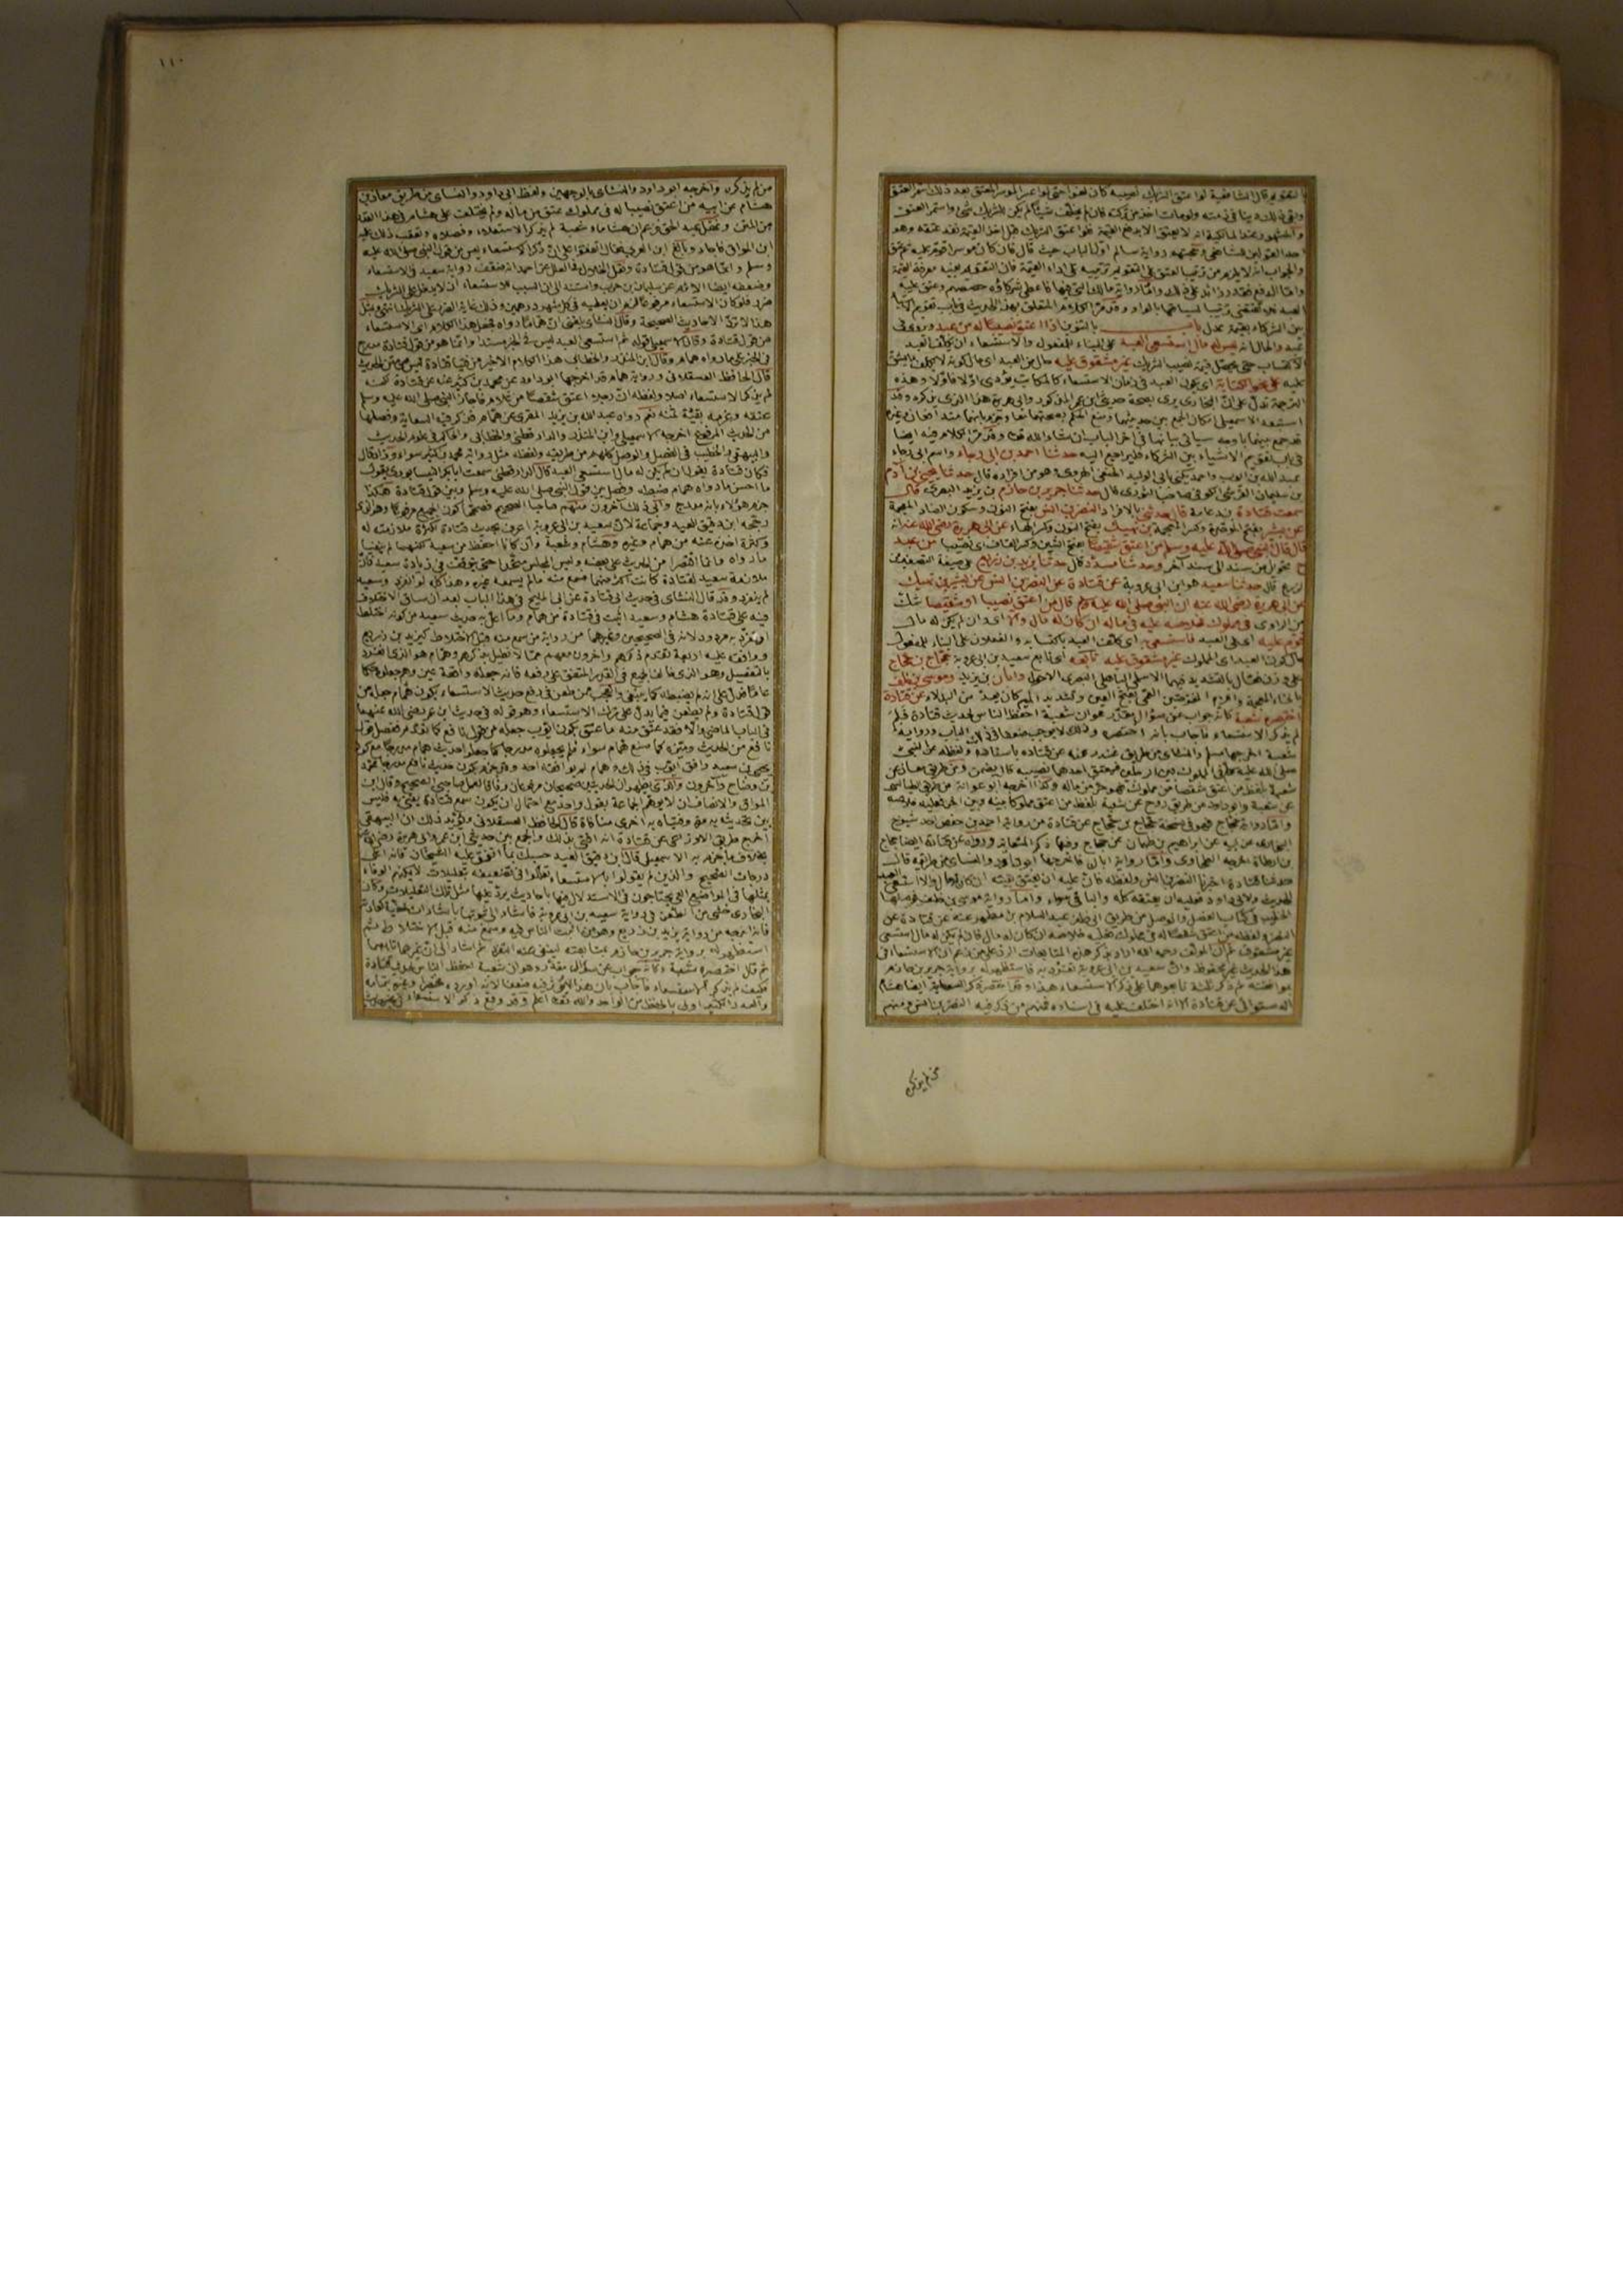 قال الشافعية لو اعتق الشريك نصيبه كان لغوا حتى لو اعسر الموسر المعتق بعد ذلك استمر العتق
وبقي ذلك دينا في ذمته ولو مات اخذ من تركته فان لم يخلف شيئا لم يكن للشريك شيء واستمر العتق
والمشهور عند المالكية انه لا يعتق الا بدفع القيمة فلو اعتق الشريك قبل اخذ القيمة نفذ عتقه وهو
احد اقوال الشافعي وحجتهم رواية سالم اول الباب حيث قال فان كان موسرا قوم عليه ثم يعتق
والجواب انه لا يلزم من ترتيب العتق على التقويم ترتيبه على اداء القيمة فان التقويم يفيد معرفة القيمة
واما الدفع فقدر زائد على ذلك واما رواية مالك التي فيها فاعطى شركاءه حصصهم وعتق عليه
العبد
بين الشركاء بقيمة عدل باب بالتنوين اذا اعتق نصيبا له من عبد
وليس له مال استسعي العبد على البناء للمفعول والاستسعاء ان يكلف العبد
الاكتساب حتى يحصل قيمة نصيب الشريك غير مشقوق عليه
عليه على نحو الكتابة اي يكون العبد في زمان الاستسعاء كالمكاتب يؤدي اولا فاولا وهذه
في باب تقويم الاشياء بين الشركاء فليراجع اليه حدثنا احمد بن ابي رجاء واسم ابي رجاء
عبد الله بن ايوب واحمد يكنى بابي الوليد الحنفي الهروي وهو من افراده قال حدثنا يحيى بن آدم
بن سليمان القرشي الكوفي صاحب الثوري قال حدثنا جرير بن حازم بن يزيد البصري قال
سمعت قتادة بن دعامة قال حدثني بالافراد النضر بن انس بفتح النون وسكون الضاد المعجمة
عن بشير بفتح الموحدة وكسر المعجمة بن نهيك بفتح النون وكسر الهاء عن ابي هريرة رضي الله عنه انه
قال قال النبي صلى الله عليه وسلم من اعتق شقيصا بفتح الشين وكسر القاف اي نصيبا من عبد
ح تحويل من سند الى سند آخر وحدثنا مسدد قال حدثنا يزيد بن زريع على صيغة التصغير من
الزرع قال حدثنا سعيد هو ابن ابي عروبة عن قتادة عن النضر بن انس عن بشير بن نهيك
عن ابي هريرة رضي الله عنه ان النبي صلى الله عليه وسلم قال من اعتق نصيبا او شقيصا شك
من الراوي في مملوك فخلاصه عليه في ماله ان كان له مال والا اي وان لم يكن له مال
قوم عليه اي على العبد فاستسعي به اي كلف العبد باكتسابه والفعلان على البناء للمفعول
حال كون العبد اي المملوك غير مشقوق عليه تابعه اي تابع سعيد بن ابي عروبة حجاج بن حجاج
على وزن فعال بالتشديد فيهما الاسلمي الباهلي البصري الاحول وابان بن يزيد وموسى بن خلف
عن قتادة
اختصره شعبة كانه جواب عن سؤال مقدر هو ان شعبة احفظ الناس لحديث قتادة فكيف
لم يذكر الاستسعاء فاجاب بانه اختصره
شعبة اخرجها مسلم والنسائي من طريق غندر عنه عن قتادة باسناده ولفظه عن النبي
صلى الله عليه وسلم في المملوك بين الرجلين فيعتق احدهما نصيبه قال يضمن ومن طريق معاذ عن
شعبة بلفظ من اعتق شقصا من مملوك فهو حر من ماله وكذا اخرجه ابو عوانة من طريق الطيالسي
عن شعبة وابو داود من طريق روح عن شعبة بلفظ من اعتق مملوكا بينه وبين آخر فعليه خلاصه
واما رواية حجاج فهو في نسخة حجاج بن حجاج عن قتادة من رواية احمد بن حفص احد شيوخ
البخاري عن ابيه عن ابراهيم بن طهمان عن حجاج وفيها ذكر السعاية ورواه عن قتادة ايضا حجاج
بن ارطاة اخرجه الطحاوي واما رواية ابان فاخرجها ابو داود والنسائي من طريقه قال
حدثنا قتادة اخبرنا النضر بن انس ولفظه فان عليه ان يعتق بقيته ان كان له مال والا استسعي العبد
الحديث ولابي داود فعليه ان يعتقه كله والباقي سواء واما رواية موسى بن خلف فوصلها
الخطيب في كتاب الفصل والوصل من طريق ابي ظفر عبد السلام بن مطهر عنه عن قتادة عن
النضر ولفظه من اعتق شقصا له في مملوك فعليه خلاصه ان كان له مال فان لم يكن له مال استسعي
غير مشقوق عليه
هذا الحديث غير محفوظ وان سعيد بن ابي عروبة تفرد به فاستظهر له برواية جرير بن حازم
بموافقته ثم ذكر ثلاثة تابعوهما على ذكر الاستسعاء
الدستوائي عن قتادة الا انه اختلف عليه في اسناده فمنهم من ذكر فيه النضر بن انس ومنهم
من لم يذكره
١١٠
من لم يذكره واخرجه ابو داود والنسائي بالوجهين ولفظ ابي داود والنسائي من طريق معاذ بن
هشام عن ابيه من اعتق نصيبا له في مملوك عتق من ماله ولم يختلف على هشام في هذا القدر
من المتن وغفل عبد الحق فزعم ان هشاما وشعبة لم يذكرا الاستسعاء فوصلاه وتعقب ذلك عليه
ابن المواق فاجاد وبالغ ابن العربي فقال اتفقوا على ان ذكر الاستسعاء ليس من قول النبي صلى الله عليه
وسلم وانما هو من قول قتادة ونقل الخلال في العلل عن احمد انه ضعف رواية سعيد في الاستسعاء
وضعفها ايضا الاثرم عن سليمان بن حرب واستند الى ان السبب للاستسعاء ان لا يدخل على الشريك
ضرر فلو كان الاستسعاء مشروعا للزم ان يعطيه في كل شهر درهمين وفي ذلك غاية الضرر على الشريك انتهى وبمثل
هذا لا ترد الاحاديث الصحيحة وقال النسائي بلغني ان هماما رواه فجعل هذا الكلام اي الاستسعاء
من قول قتادة وقال الاسمعيلي قوله ثم استسعي العبد ليس في الخبر مسندا وانما هو من قول قتادة مدرج
في الخبر على ما رواه همام وقال ابن المنذر والخطابي هذا الكلام الاخير من فتيا قتادة ليس من متن الحديث
قال الحافظ العسقلاني ورواية همام قد اخرجها ابو داود عن محمد بن كثير عنه عن قتادة لكنه
لم يذكر الاستسعاء اصلا ولفظه ان رجلا اعتق شقصا من غلام فاجاز النبي صلى الله عليه وسلم
عتقه وغرمه بقية ثمنه نعم رواه عبد الله بن يزيد المقرئ عن همام فذكر فيه السعاية وفصلها
من الحديث المرفوع اخرجه الاسمعيلي وابن المنذر والدارقطني والخطابي والحاكم في علوم الحديث
والبيهقي والخطيب في الفصل والوصل كلهم من طريقه ولفظه مثل رواية محمد بن كثير سواء وزاد قال
فكان قتادة يقول ان لم يكن له مال استسعي العبد قال الدارقطني سمعت ابا بكر النيسابوري يقول
ما احسن ما رواه همام ضبطه وفصل بين قول النبي صلى الله عليه وسلم وبين قول قتادة هكذا
جزم هؤلاء بانه مدرج وابى ذلك آخرون منهم صاحبا الصحيح فصححا كون الجميع مرفوعا وهو الذي
رجحه ابن دقيق العيد وجماعة لان سعيد بن ابي عروبة اعرف بحديث قتادة لكثرة ملازمته له
وكثرة اخذه عنه من همام وغيره وهشام وشعبة وان كانا احفظ من سعيد لكنهما لم ينفيا
ما رواه وانما اقتصرا من الحديث على بعضه وليس المجلس متحدا حتى يتوقف في زيادة سعيد فان
ملازمة سعيد لقتادة كانت اكثر منهما فسمع منه ما لم يسمعه غيره وهذا كله لو انفرد وسعيد
لم ينفرد وقد قال النسائي في حديث قتادة عن ابي المليح في هذا الباب بعد ان ساق الاختلاف
فيه على قتادة هشام وسعيد اثبت في قتادة من همام وما اعل به حديث سعيد من كونه اختلط
او تفرد به مردود لانه في الصحيحين وغيرهما من رواية من سمع منه قبل الاختلاط كيزيد بن زريع
ووافقه عليه اربعة تقدم ذكرهم وآخرون معهم مما لا نطيل بذكرهم وهمام هو الذي انفرد
بالتفصيل وهو الذي خالف الجميع في القدر المتفق على رفعه فانه جعله واقعة عين وهم جعلوه حكما
عاما فدل على انه لم يضبطه كما ينبغي والعجب ممن طعن في رفع حديث الاستسعاء بكون همام جعله من
قول قتادة ولم يطعن فيما يدل على ترك الاستسعاء وهو قوله في حديث ابن عمر رضي الله عنهما
في الباب الماضي والا فقد عتق منه ما عتق بكون ايوب جعله من قول نافع كما تقدم ففصل قول
نافع من الحديث وميزه كما صنع همام سواء فلم يجعلوه مدرجا كما جعلوا حديث همام مدرجا مع كون
يحيى بن سعيد وافق ايوب في ذلك وهمام لم يوافقه احد وقد جزم بكون حديث نافع مدرجا محمد
بن وضاح وآخرون والذي يظهر ان الحديثين صحيحان مرفوعان وفاقا لعمل صاحبي الصحيح وقال ابن
المواق والانصاف ان لا يوهم الجماعة بقول واحد مع احتمال ان يكون سمع قتادة يفتي به فليس
بين تحديثه به مرة وفتياه به اخرى منافاة قال الحافظ العسقلاني ويؤيد ذلك ان البيهقي
اخرج من طريق الاوزاعي عن قتادة انه افتى بذلك والجمع بين حديثي ابن عمر وابي هريرة رضي الله عنهم
بخلاف ما جزم به الاسمعيلي قال ابن دقيق العيد حسبك بما اتفق عليه الشيخان فانه اعلى
درجات الصحيح والذين لم يقولوا بالاستسعاء تعللوا في تضعيفه بتعليلات لا يمكنهم الوفاء
بمثلها في المواضع التي يحتاجون الى الاستدلال فيها باحاديث يرد عليها مثل تلك التعليلات وكان
البخاري خشي من الطعن في رواية سعيد بن ابي عروبة فاشار الى ثبوتها باشارات خفية كعادته
فانه اخرجه من رواية يزيد بن زريع وهو من اثبت الناس فيه وسمع منه قبل الاختلاط ثم
استظهر له برواية جرير بن حازم بمتابعته لينفي عنه التفرد ثم اشار الى ان غيرهما تابعهما
ثم قال اختصره شعبة وكانه جواب عن سؤال مقدر وهو ان شعبة احفظ الناس لحديث قتادة
فكيف لم يذكر الاستسعاء فاجاب بان هذا لا يؤثر فيه ضعفا لانه اورده مختصرا وغيره بتمامه
والعدد الكثير اولى بالحفظ من الواحد والله تعالى اعلم وقد وقع ذكر الاستسعاء في غير حديث